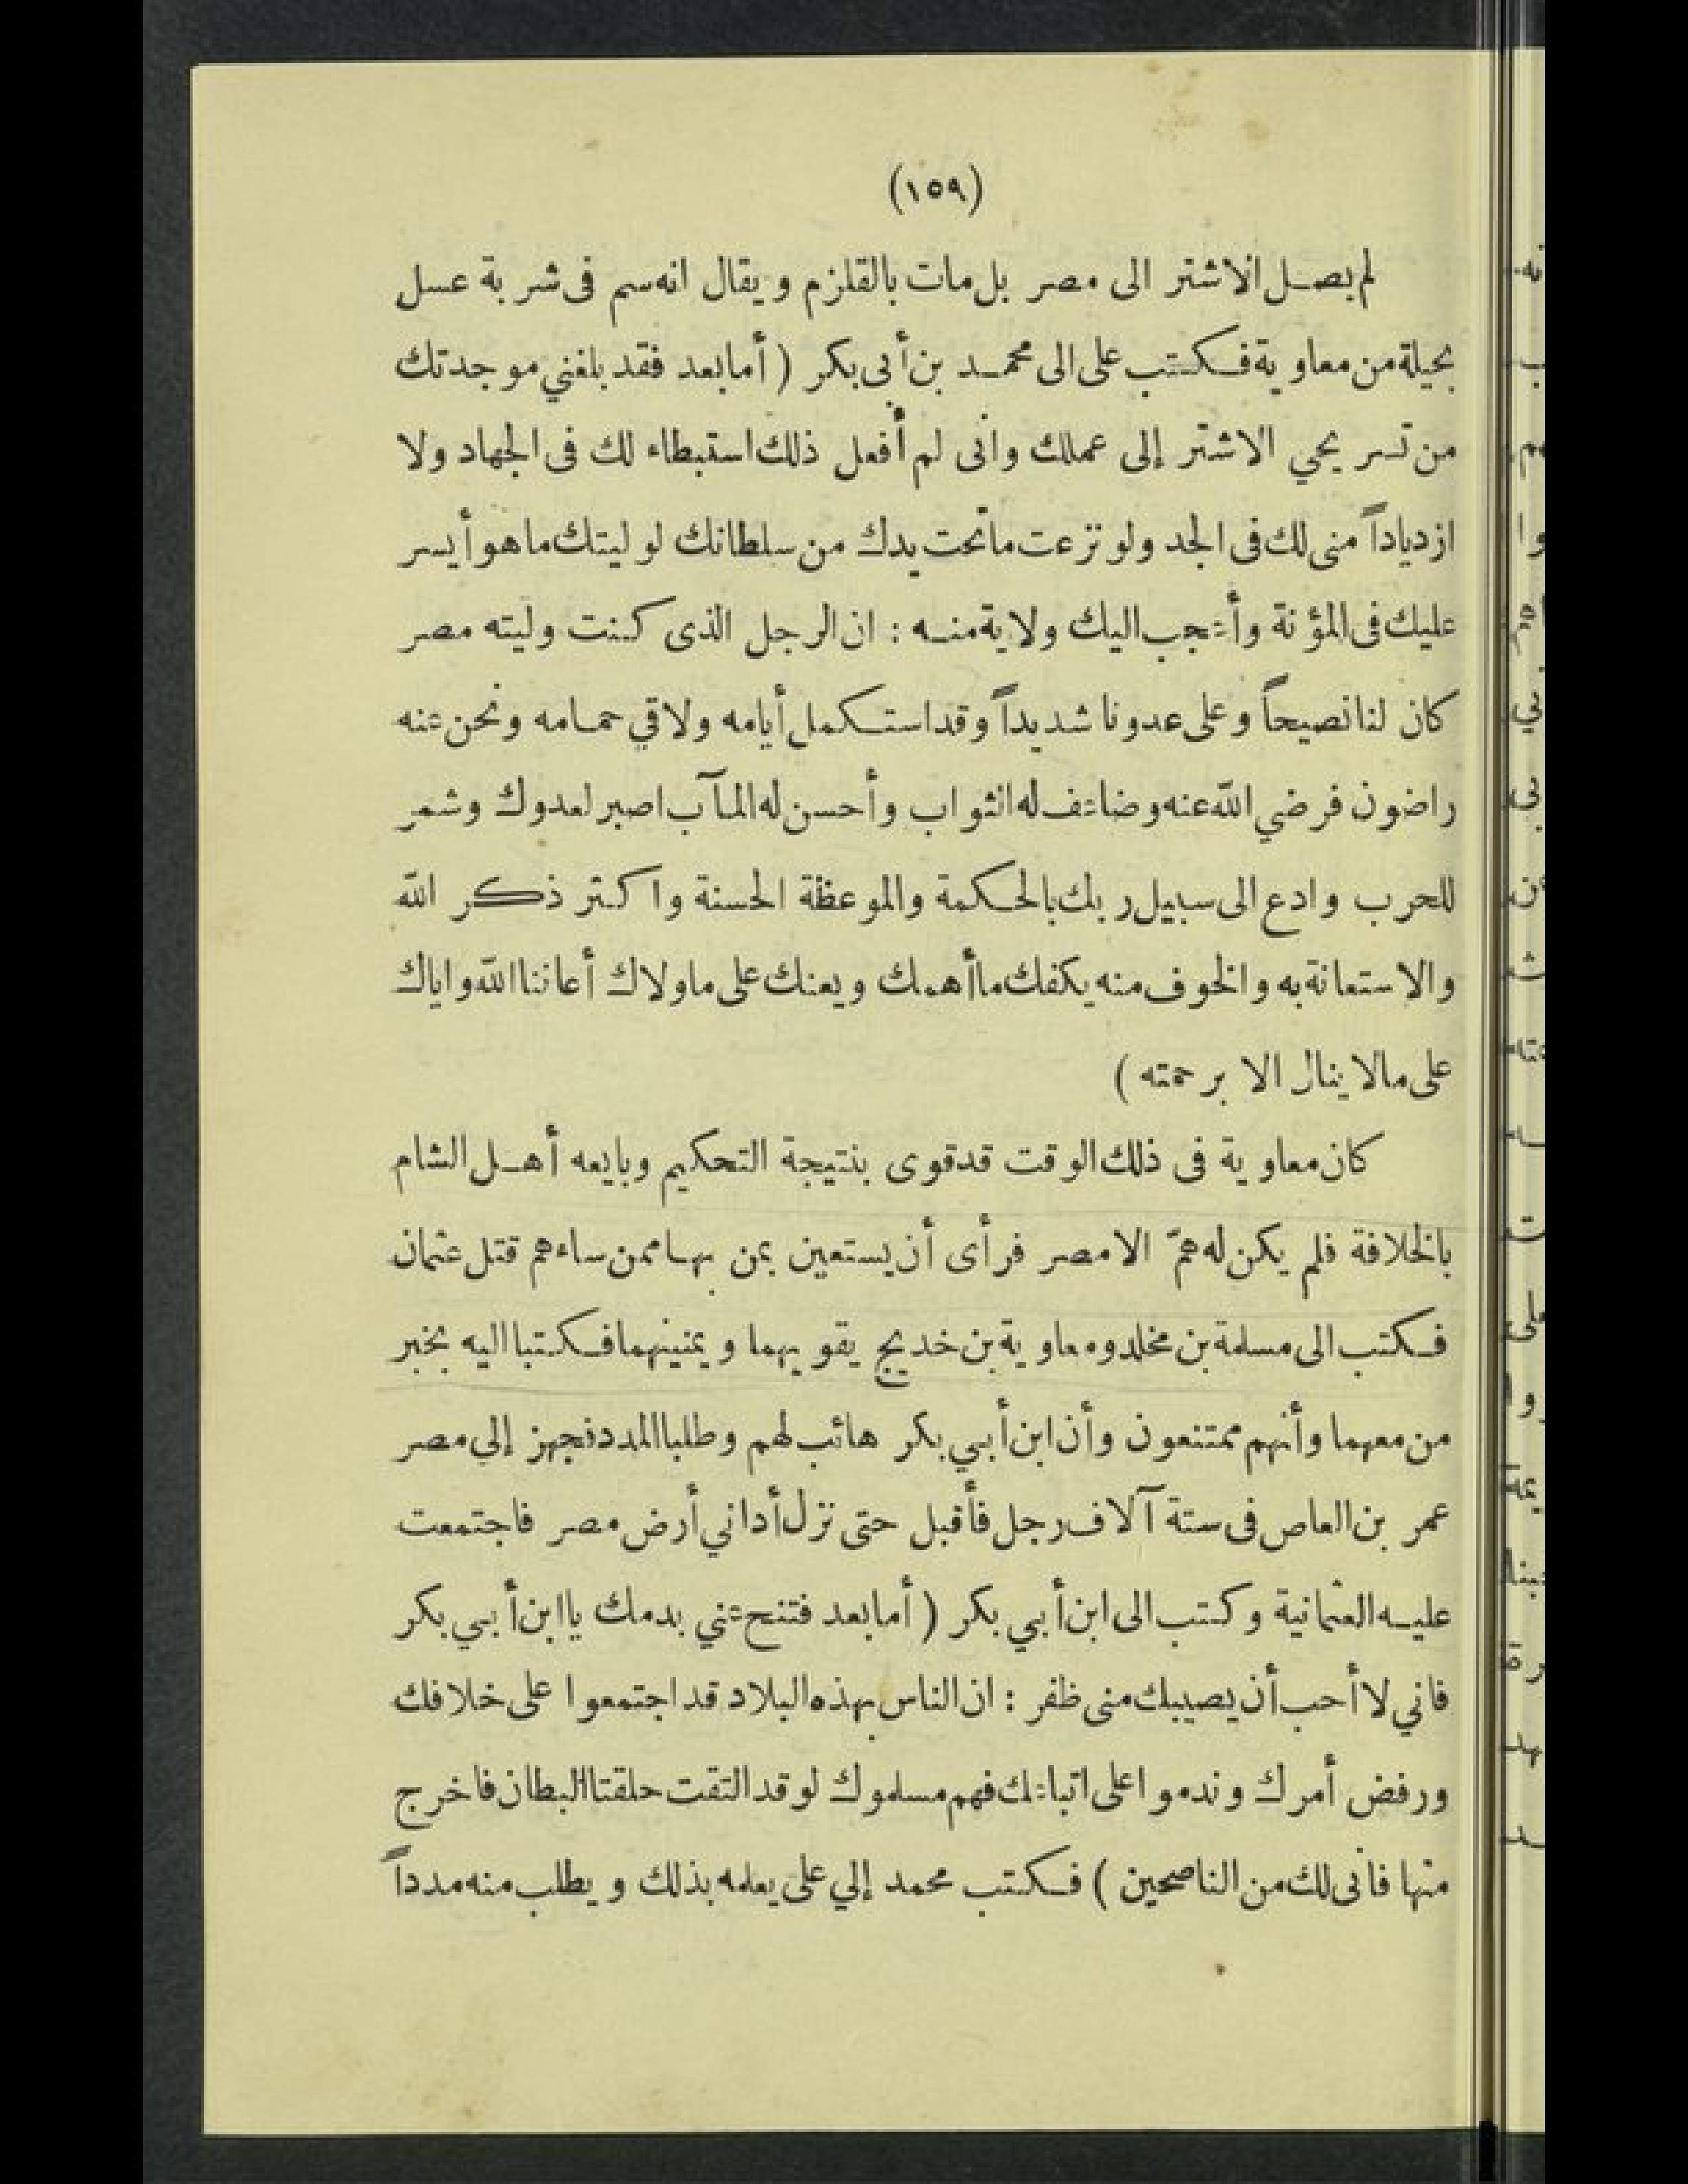 (١٥٩)
لم يصل الاشتر الى مصر بل مات بالقلزم ويقال انه سم فى شربة عسل
بحيلة من معاوية فكتب على الى محمد بن أبى بكر ( أما بعد فقد بلغني موجدتك
من تسريحي الاشتر إلى عملك وانى لم أفعل ذلك استبطاء لك فى الجهاد ولا
ازدياداً منى لك فى الجد ولو نزعت ما تحت يدك من سلطانك لوليتك ما هو أيسر
عليك فى المؤنة وأعجب اليك ولاية منه : ان الرجل الذى كنت وليته مصر
كان لنا نصيحاً وعلى عدونا شديداً وقد استكمل أيامه ولاقي حمامه ونحن عنه
راضون فرضي الله عنه وضاعف له الثواب وأحسن له المآب اصبر لعدوك وشمر
للحرب وادع الى سبيل ربك بالحكمة والموعظة الحسنة واكثر ذكر الله
والاستعانة به والخوف منه يكفك ما أهمك ويعنك على ما ولاك أعاننا الله واياك
على مالا ينال الا برحمته )
كان معاوية فى ذلك الوقت قد قوى بنتيجة التحكيم وبايعه أهل الشام
بالخلافة فلم يكن له همّ الا مصر فرأى أن يستعين بمن بها ممن ساءهم قتل عثمان
فكتب الى مسلمة بن مخلد ومعاوية بن خديج يقويهما ويمنيهما فكتبا اليه بخبر
من معهما وأنهم ممتنعون وأن ابن أبي بكر هائب لهم وطلبا المدد فجهز إلي مصر
عمر بن العاص فى ستة آلاف رجل فأقبل حتى نزل أداني أرض مصر فاجتمعت
عليه العثمانية وكتب الى ابن أبي بكر ( أما بعد فتنح عني بدمك يا ابن أبي بكر
فاني لا أحب أن يصيبك منى ظفر : ان الناس بهذه البلاد قد اجتمعوا على خلافك
ورفض أمرك وندموا على اتباعك فهم مسلموك لو قد التقت حلقتا البطان فاخرج
منها فانى لك من الناصحين ) فكتب محمد إلي على يعلمه بذلك ويطلب منه مدداً